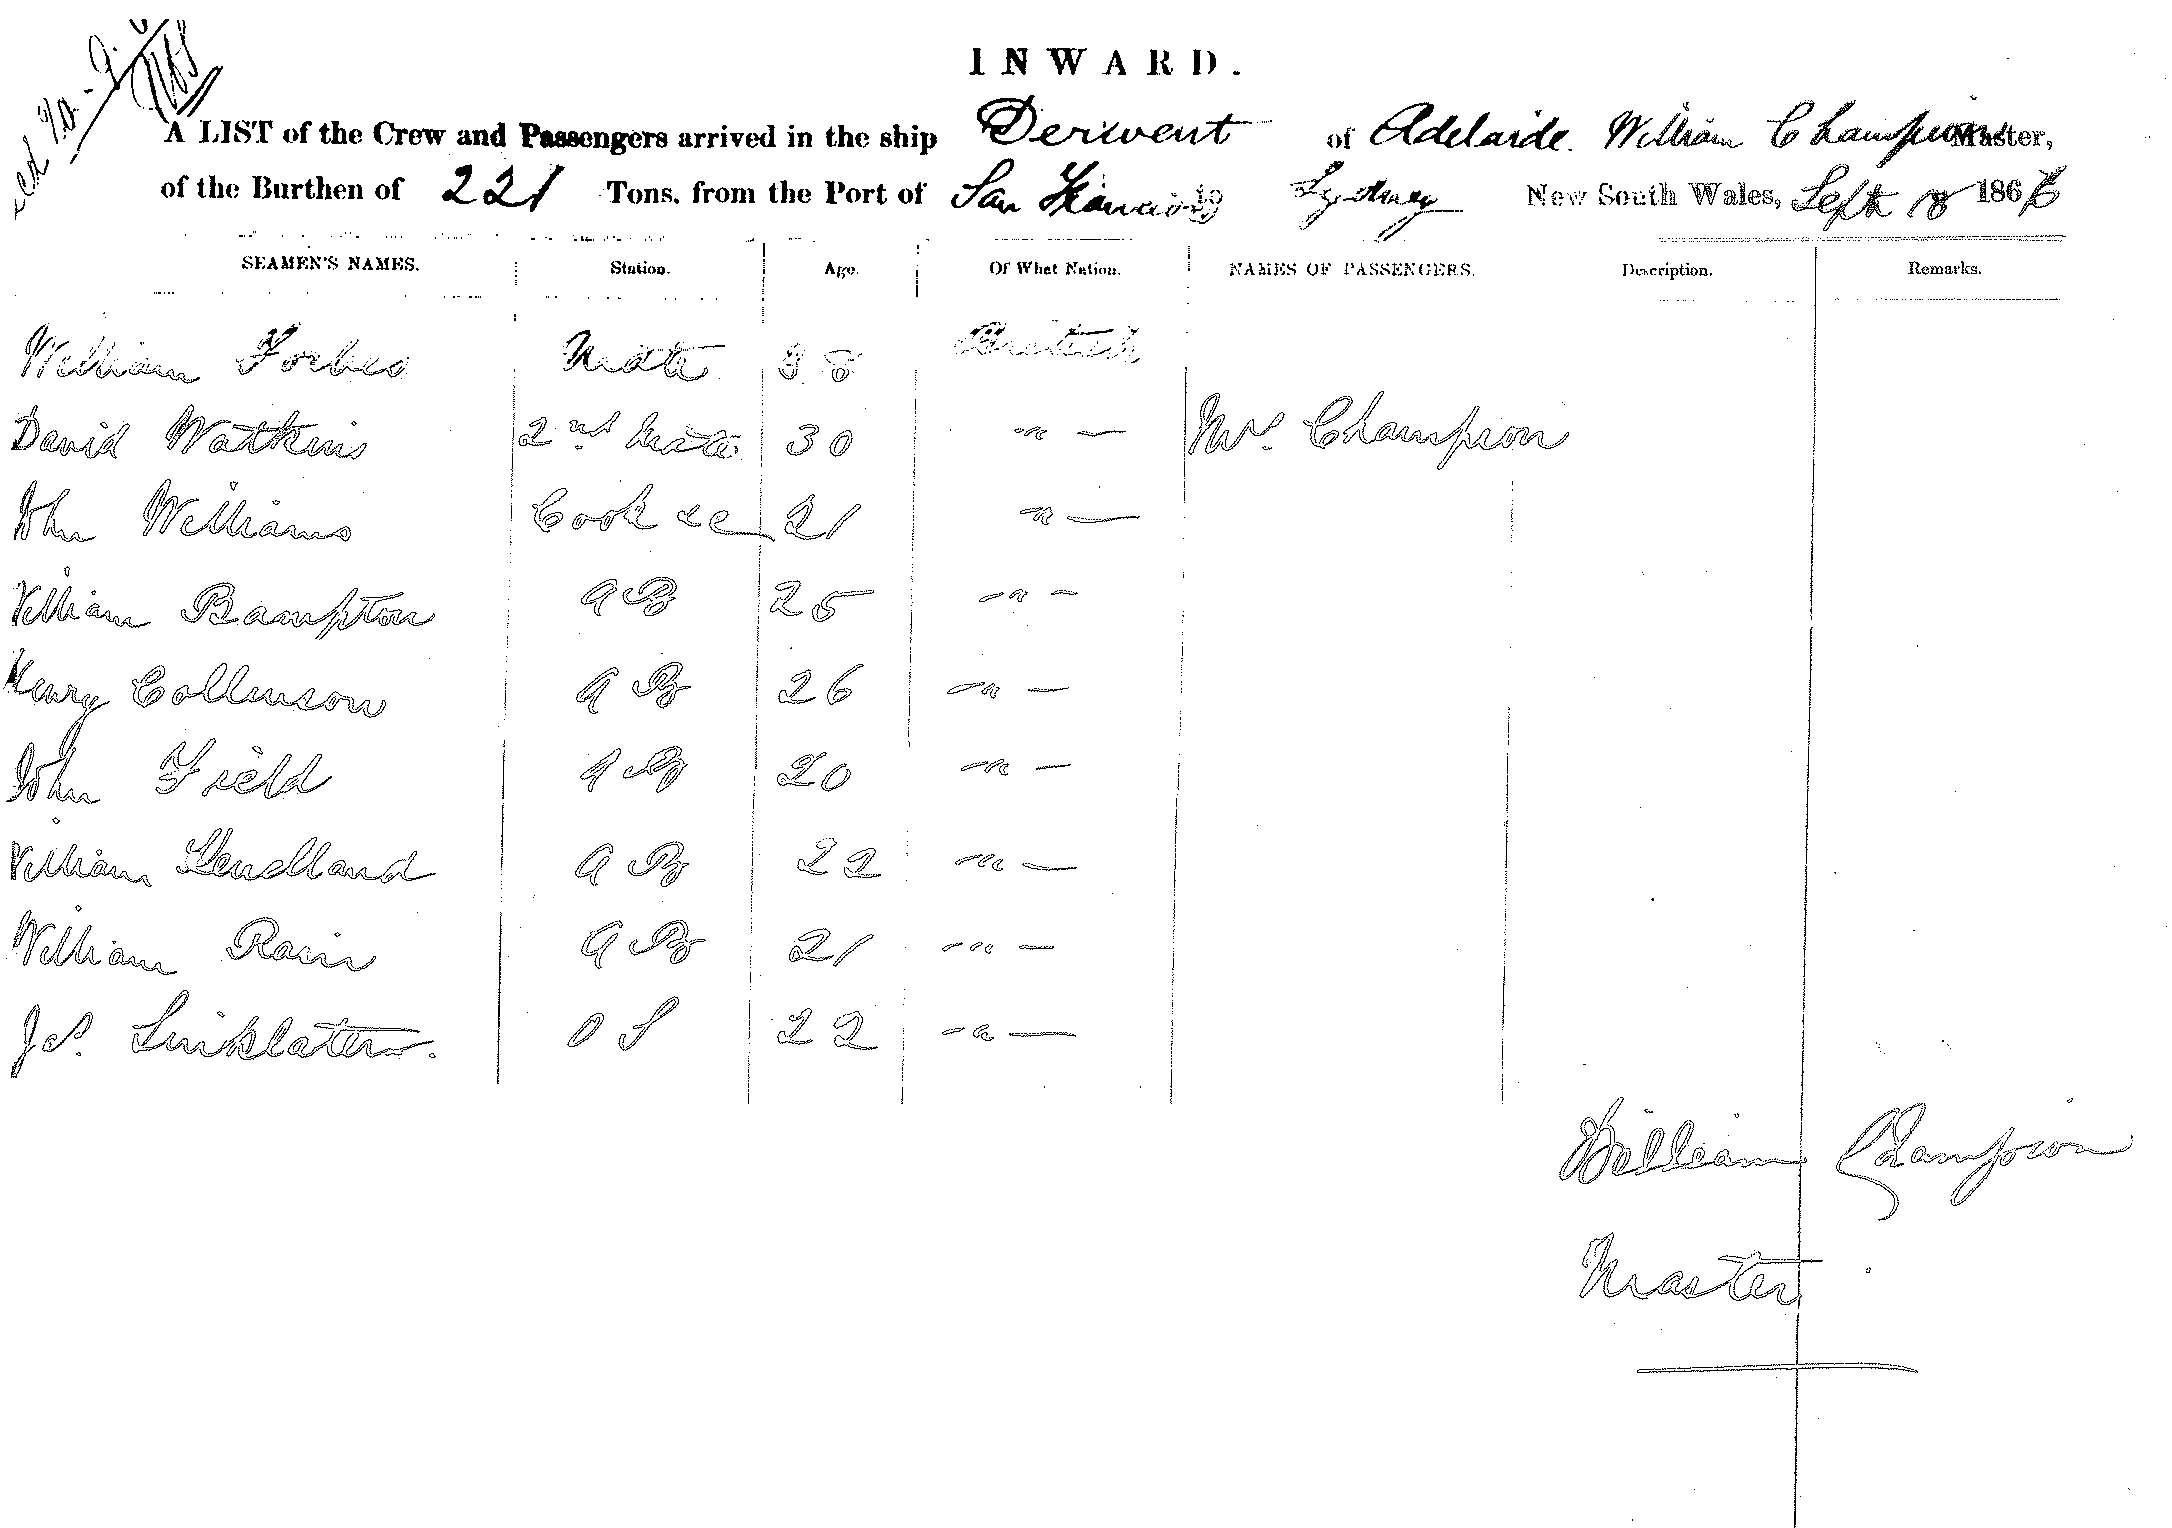 INWARD.
A LIST of the Crew and Passengers arrived in the ship Derwent of Adelaide. William Champion Master,
of the Burthen of 221 Tons, from the Port of San Francisco to Sydney New South Wales, Sept 18 186
SEAMEN'S NAMES. Station. Age. Of What Nation. NAMES OF PASSENGERS. Description. Remarks.
William Forbes Mate 38 British
David Watkins 2nd Mate 30 -"- Mrs. Champion
John Williams Cook &c 21 -"-
William Bampton AB 25 -"-
Henry Collinson AB 26 -"-
John Field AB 20 -"-
William AB 22 -"-
William Rain AB 21 -"-
Jas. Linklater. OS 22 -"-
William Champion
Master